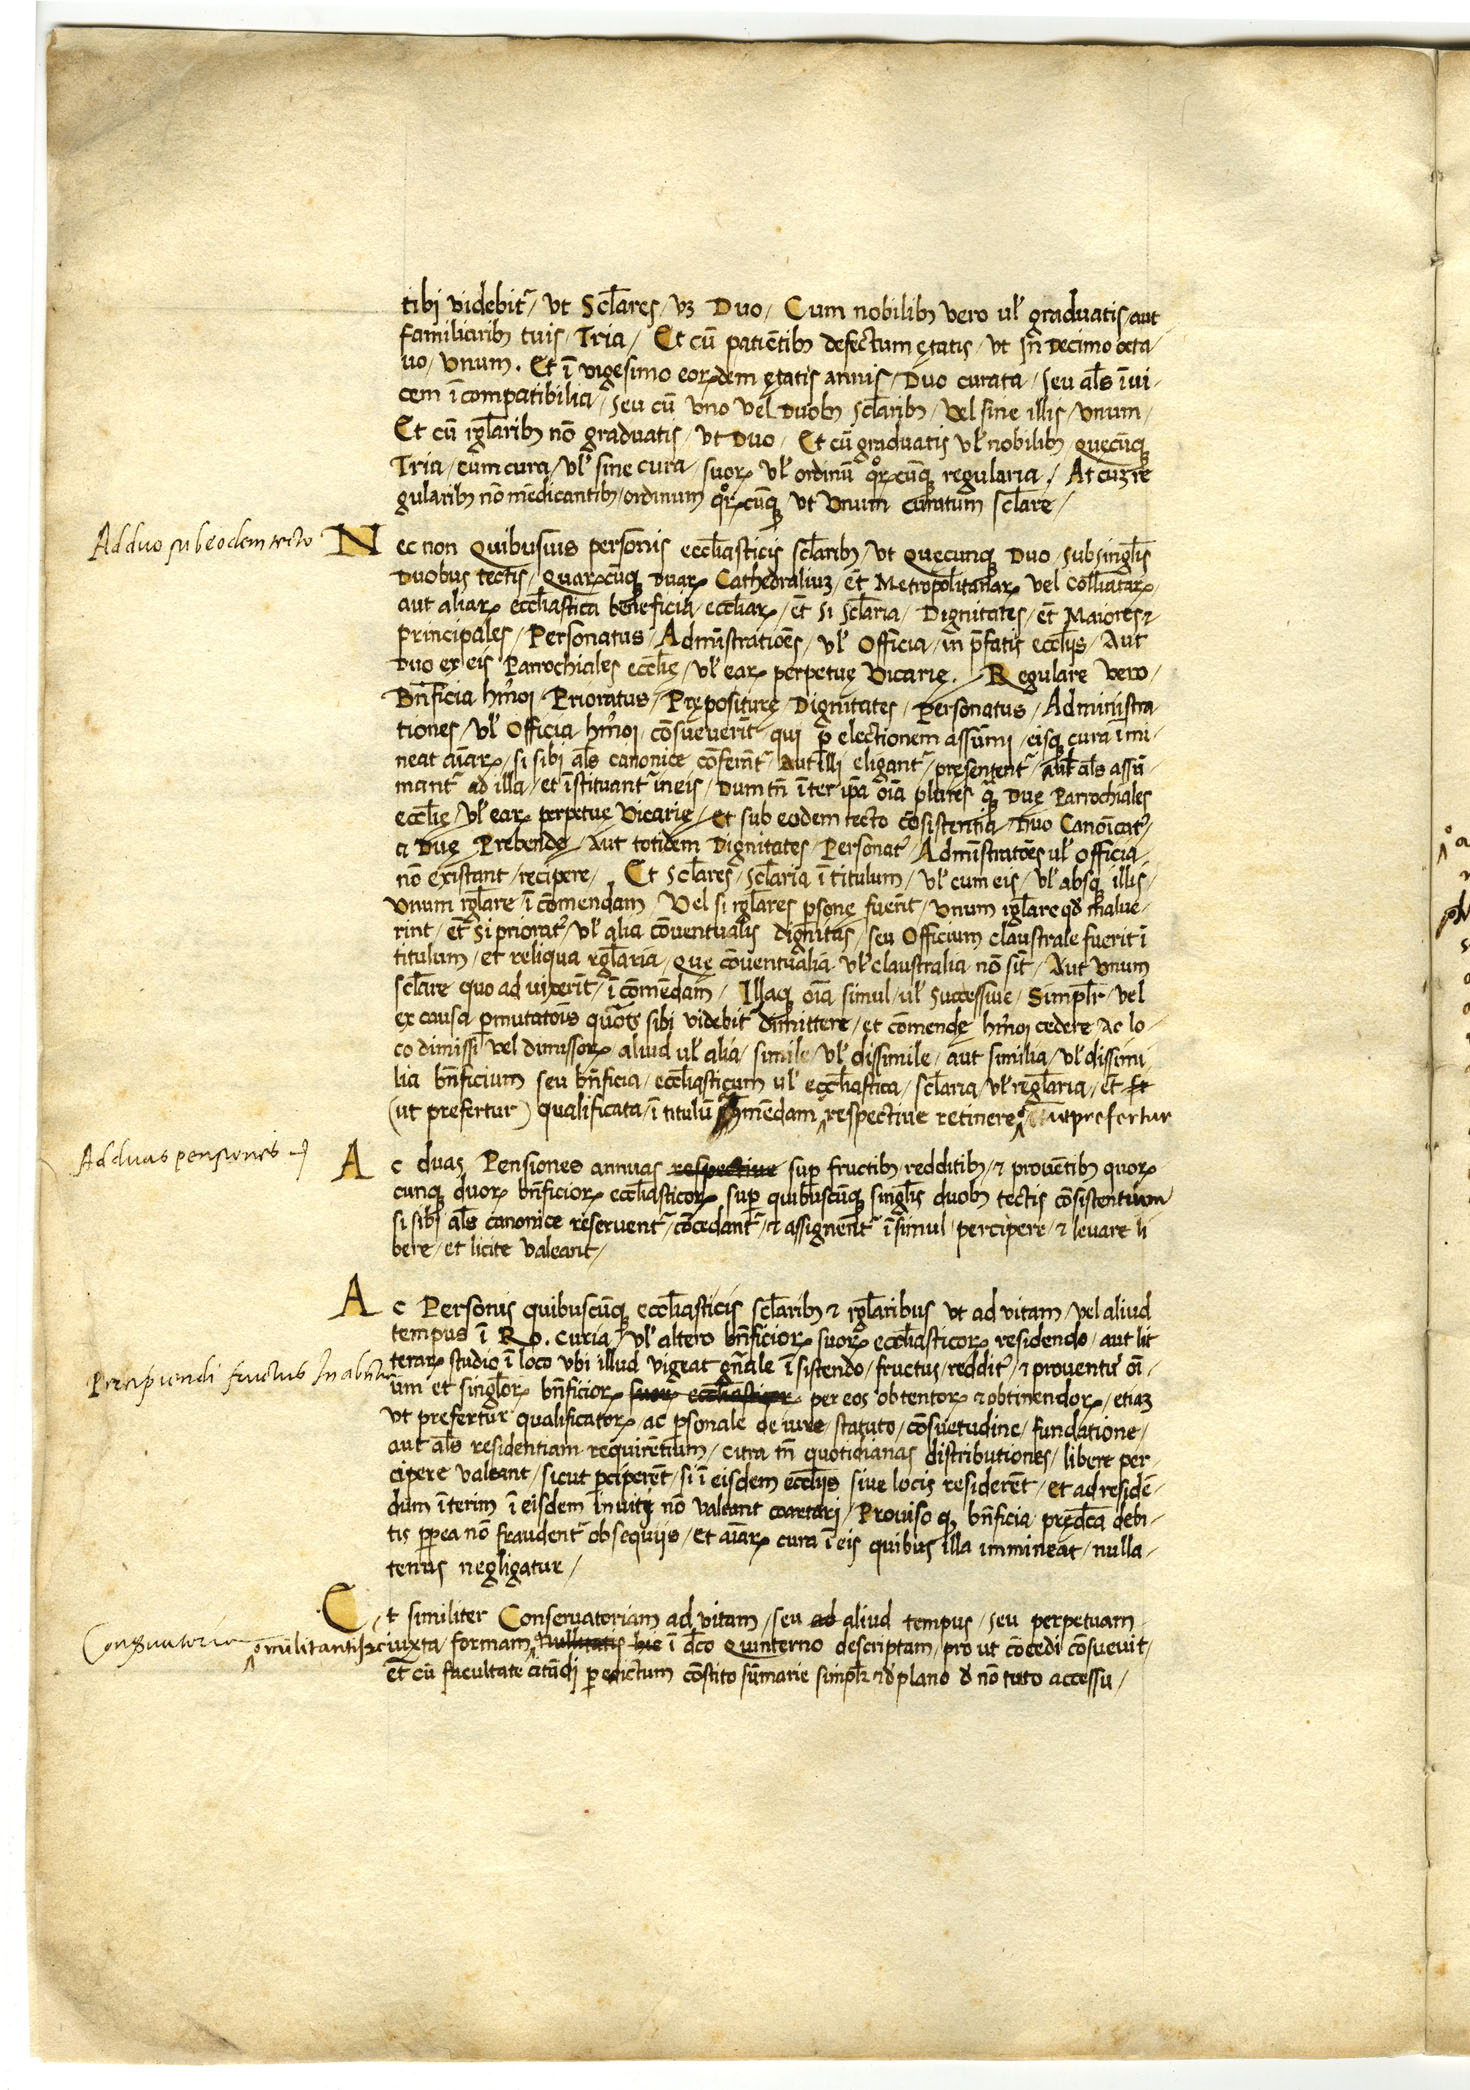 tibi videbit᷑ / vt Sclares / vꝫ Duo / Cum nobilibꝫ vero ul̕ graduatis / aut
familiaribꝫ tuis / Tria / Et cū patiētibꝫ defectum ętatis / vt in Decimo octa
uo / vnum . Et ī vigesimo eorꝝdem ętatis annis / Duo curata / seu al̄s īui-
cem īcompatibilia / seu cū vno vel Duobꝫ sclaribꝫ / vel sine illis / vnum /
Et cū rglaribꝫ nō graduatis / vt Duo / Et cū graduatis vl̕ nobilibꝫ quęcūqꝫ
Tria / cum cura / vl̕ sine cura / suorꝝ vl̕ ordinū qꝛꝝcūqꝫ regularia / At cuꝫ re
gularibꝫ nō mēdicantibꝫ / ordinum qꝛꝝcūqꝫ vt vnum curatum sclare /
Ad duo sub eodem tecto
Nec non Quibusuis personis eccl̄iasticis sclaribꝫ / vt Quecunqꝫ Duo / sub singl̄is
Duobus tectis / Quarꝝcūqꝫ Duarꝝ Cathedraliuꝫ / et̄ Metropolitanarꝝ vel Coll̄iatarꝝ /
aut aliarꝝ eccl̄iastica beneficia / eccl̄iarꝝ / et̄ si sclaria / Dignitates / et̄ Maiores ⁊
principales / Personatus / Admīstratiōes / vl̕ Officia / in p̄fatis eccl̄iis / Aut
Duo ex eis Parrochiales eccl̄ię / vl̕ earꝝ perpetuę Vicarię . / Regulare vero /
Bn̄ficia hm̄oi Prioratus / Prępositurę / Dignitates / Personatus / Administra
tiones / vl̕ Officia hm̄oi / cōsueuerīt qui p̄ electionem assūmi / eisqꝫ cura īmi-
neat aīarꝝ / si sibi al̄s canonice cōferūt᷑ / aut illi eligant᷑ / presentent᷑ / aut al̄s assū-
mant᷑ ad illa / et īstituant᷑ in eis / Dum tn̄ īter ip̄a oīa plures q̄ꝫ Duę Parrochiales
eccl̄ię / vl̕ earꝝ perpetuę Vicarię / et sub eodem tecto cōsistentia / Duo Canoīcat᷒ /
⁊ Duę Prebendę / Aut totidem Dignitates / Personat᷒ / Admīstratōes ul̕ Officia /
nō existant / recipere / Et Sclares / sclaria ī titulum / vl̕ cum eis / vl̕ absqꝫ illis /
vnum rglare / ī cōmendam / Vel si rglares psonę fuerīt / vnum rglare qd̄ malue-
rint / et̄ si priorat᷒ / vl̕ alia cōuentualis dignitas / seu Officium claustrale fuerit ī
titulum / et reliqua rglaria / quę cōuentualia vl̕ claustralia nō sīt / Aut vnum
sclare quo ad vixerīt / ī cōmēdam / Illaqꝫ oīa simul / ul̕ successiue / Simpl̄r / vel
ex causa pmutatōis quōts sibi videbit᷑ dimittere / et cōmendę hm̄oi cedere Ac lo-
co dimissi vel dimissorꝝ aliud ul̕ alia / simile / vl̕ dissimile / aut similia / vl̕ dissimi-
lia bn̄ficium seu bn̄ficia / eccl̄iasticum ul̕ eccl̄iastica / sclaria / vl̕ reglaria / et̄
(ut prefertur) qualificata / ī titulū mēdam respectiue retinere ut prefertur
Ad duas pensiones
Ac duas Pensiones annuas respectiue sup fructibꝫ redditibꝫ / ⁊ prouētibꝫ quorꝝ
cunqꝫ duorꝝ bn̄ficiorꝝ eccl̄iasticorꝝ sup quibuscūqꝫ singl̄is duobꝫ tectis cōsistentium
si sibi al̄s canonice reseruent᷑ / cōcedant᷑ / ⁊ assignent᷑ īsimul / percipere / ⁊ leuare li
bere / et licite valeant /
Ac Personis quibuscūqꝫ eccl̄iasticis sclaribꝫ ⁊ rglaribus vt ad vitam / vel aliud
tempus ī Ro. Curia / vl̕ altero bn̄ficiorꝝ suorꝝ eccl̄iasticorꝝ residendo / aut lit
terarꝝ studio ī loco vbi illud vigeat gn̄ale īsistendo / fructus / reddit᷒ / ⁊ prouentu᷒ oī-
Percipiendi fructus In absentia
um et singlorꝝ bn̄ficiorꝝ suorꝝ eccl̄iasticorꝝ per eos obtentorꝝ ⁊ obtinendorꝝ / etiaꝫ
vt prefertur qualificatorꝝ ac psonale de iure / statuto / cōsuetudine / fundatione /
aut al̄s residentiam requirētium / citra tn̄ quotidianas distributiones / libere per-
cipere valeant / sicut pciperēt / si ī eisdem eccl̄iis siue locis residerēt / et ad residē-
dum īterim ī eisdem inuiti nō valeant coartari / Prouiso qꝫ bn̄ficia pręd̄ca debi-
tis ppea nō fraudent᷑ obsequiis / et aīarꝝ cura ī eis quibus illa immineat / nulla-
tenus negligatur /
Et similiter Conseruatoriam ad vitam / seu ad aliud tempus / seu perpetuam
Conseruatoria
militantis ⁊c iuxta / formam Nullitatis hic ī dc̄o Quinterno descriptam / pro ut cōcedi cōsueuit /
et̄ cū facultate citādi p edictum cōstito sūmarie simpl̄r ⁊ d plano d nō tuto accessu /